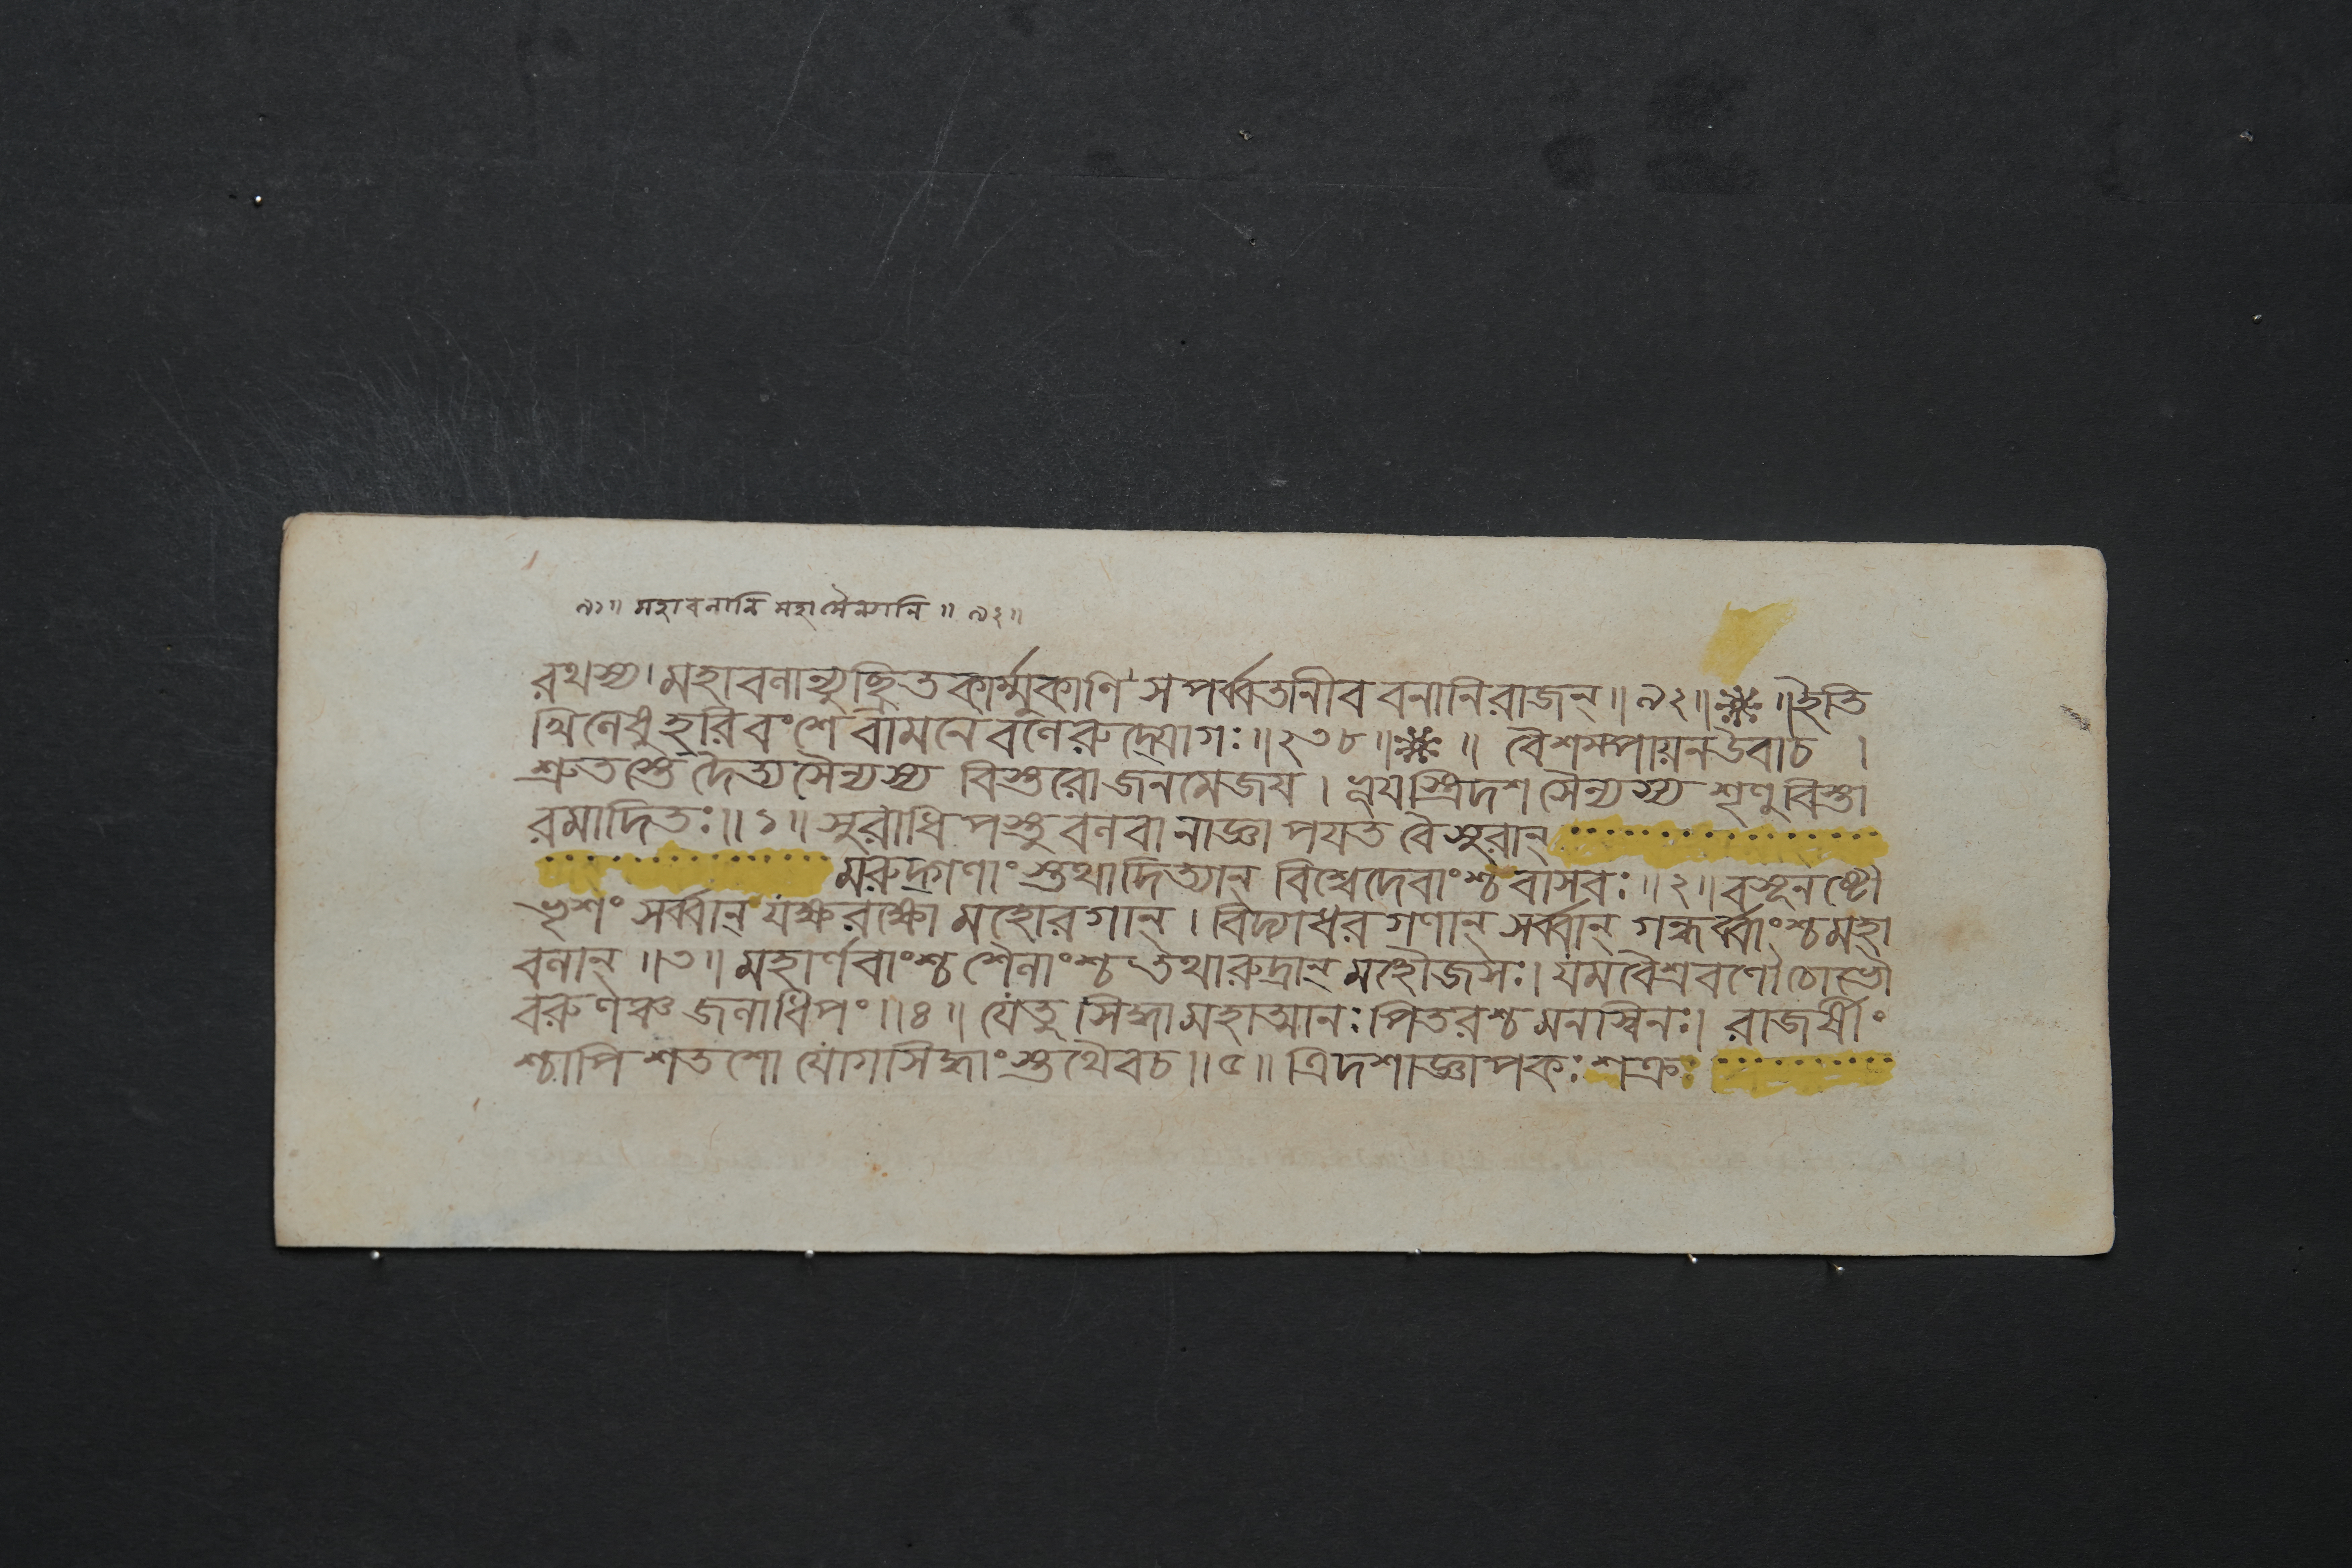 ৯১॥ মহাবনানি মহাসৈন্যানি ॥ ৯২॥
রথস্য। মহাবনান্যুচ্ছ্রিতকার্ম্মুকাণি সপর্ব্বতানীব বনানি রাজন্॥ ৯২॥ ॥ ইতি
খিলেষু হরিবংশে বামনে বলেরুদ্যোগঃ॥২৩৮॥ ॥ বৈশম্পায়ন উবাচ ।
শ্রুতস্তে দৈত্যসৈন্যস্য বিস্তরো জনমেজয । ভূযস্ত্রিদশসৈন্যস্য শৃণু বিস্তা
রমাদিতঃ॥ ১॥ সুরাধিপস্তু বলবানাজ্ঞাপযত বৈ সুরান্
মরুদ্গণাংস্তথাদিত্যান্ বিশ্বেদেবাংশ্চ বাসবঃ॥২॥ বসূনষ্টৌ
ভৃশং সর্ব্বান্ যক্ষরক্ষোমহোরগান্ । বিদ্যাধরগণান্ সর্ব্বান্ গন্ধর্ব্বাংশ্চ মহা
বলান্ ॥৩॥ মহার্ণবাংশ্চ শৈলাংশ্চ তথা রুদ্রান্ মহৌজসঃ। যমবৈশ্রবণৌ চোভৌ
বরুণঞ্চ জলাধিপং॥৪॥ যে তু সিদ্ধা মহাত্মানঃ পিতরশ্চ মনস্বিনঃ। রাজর্ষীং
শ্চাপি শতশো যোগসিদ্ধাংস্তথৈব চ॥৫॥ ত্রিদশাজ্ঞাপকঃ শক্রঃ